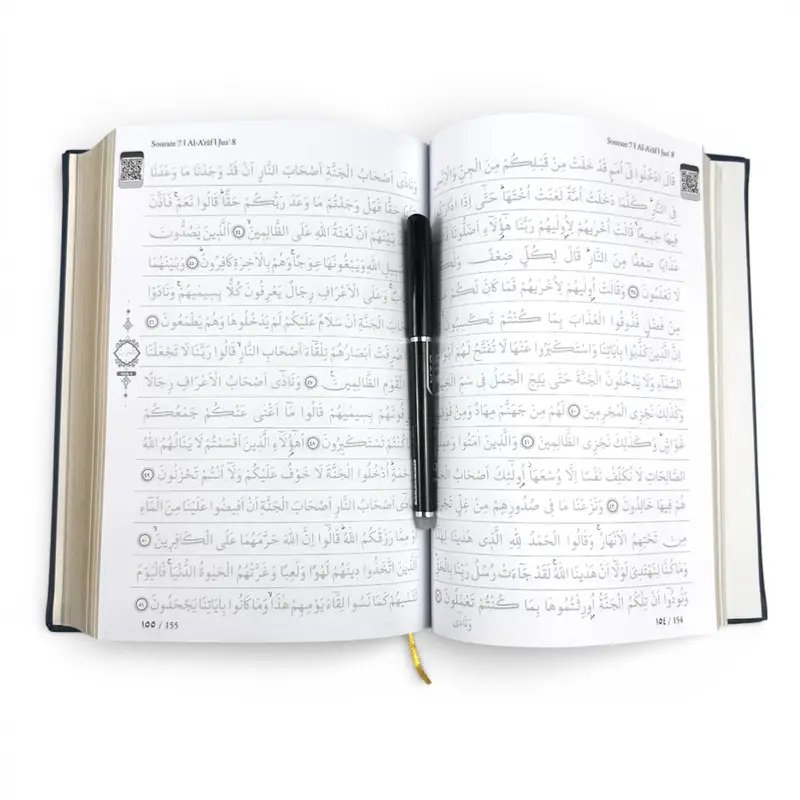 Sourate 7 I Al-A'râf I Juz' 8
قَالَ ادْخُلُوا فِٓى اُمَمٍ قَدْ خَلَتْ مِنْ قَبْلِكُمْ مِنَ الْجِنِّ وَالْاِنْسِ
فِى النَّارِۜ كُلَّمَا دَخَلَتْ اُمَّةٌ لَعَنَتْ اُخْتَهَاۜ حَتّٰٓى اِذَا
فٖيهَا جَمٖيعًاۙ قَالَتْ اُخْرٰيهُمْ لِاُولٰيهُمْ رَبَّنَا هٰٓؤُ۬لَٓاءِ اَضَلُّونَا
عَذَابًا ضِعْفًا مِنَ النَّارِۜ قَالَ لِكُلٍّ ضِعْفٌ وَلٰكِنْ
لَا تَعْلَمُونَ ٣٨ وَقَالَتْ اُولٰيهُمْ لِاُخْرٰيهُمْ فَمَا كَانَ لَكُمْ
مِنْ فَضْلٍ فَذُوقُوا الْعَذَابَ بِمَا كُنْتُمْ تَكْسِبُونَ
اِنَّ الَّذٖينَ كَذَّبُوا بِاٰيَاتِنَا وَاسْتَكْبَرُوا عَنْهَا لَا تُفَتَّحُ لَهُمْ
السَّمَٓاءِ وَلَا يَدْخُلُونَ الْجَنَّةَ حَتّٰى يَلِجَ الْجَمَلُ فٖى سَمِّ
وَكَذٰلِكَ نَجْزِى الْمُجْرِمٖينَ ٤٠ لَهُمْ مِنْ جَهَنَّمَ مِهَادٌ وَمِنْ
غَوَاشٍۜ وَكَذٰلِكَ نَجْزِى الظَّالِمٖينَ ٤١ وَالَّذٖينَ اٰمَنُوا
الصَّالِحَاتِ لَا نُكَلِّفُ نَفْسًا اِلَّا وُسْعَهَاۘ اُو۬لٰٓئِكَ اَصْحَابُ
هُمْ فٖيهَا خَالِدُونَ ٤٢ وَنَزَعْنَا مَا فٖى صُدُورِهِمْ مِنْ غِلٍّ
مِنْ تَحْتِهِمُ الْاَنْهَارُۚ وَقَالُوا الْحَمْدُ لِلّٰهِ الَّذٖى هَدٰينَا
وَمَا كُنَّا لِنَهْتَدِىَ لَوْلَٓا اَنْ هَدٰينَا اللّٰهُۚ لَقَدْ جَٓاءَتْ رُسُلُ رَبِّنَا بِالْحَقِّۜ
وَنُودُٓوا اَنْ تِلْكُمُ الْجَنَّةُ اُو۫رِثْتُمُوهَا بِمَا كُنْتُمْ تَعْمَلُونَ
وَنَادٰى
١٥٤ / 154
Sourate 7 I Al-A'râf I Juz' 8
وَنَادٰٓى اَصْحَابُ الْجَنَّةِ اَصْحَابَ النَّارِ اَنْ قَدْ وَجَدْنَا مَا وَعَدَنَا
حَقًّا فَهَلْ وَجَدْتُمْ مَا وَعَدَ رَبُّكُمْ حَقًّاۜ قَالُوا نَعَمْۚ فَاَذَّنَ
بَيْنَهُمْ اَنْ لَعْنَةُ اللّٰهِ عَلَى الظَّالِمٖينَۙ ٤٤ اَلَّذٖينَ يَصُدُّونَ
سَبٖيلِ اللّٰهِ وَيَبْغُونَهَا عِوَجًاۚ وَهُمْ بِالْاٰخِرَةِ كَافِرُونَۘ ٤٥ وَبَيْنَهُمَا
وَعَلَى الْاَعْرَافِ رِجَالٌ يَعْرِفُونَ كُلًّا بِسٖيمٰيهُمْۚ وَنَادَوْا
اَصْحَابَ الْجَنَّةِ اَنْ سَلَامٌ عَلَيْكُمْ لَمْ يَدْخُلُوهَا وَهُمْ يَطْمَعُونَ ٤٦
صُرِفَتْ اَبْصَارُهُمْ تِلْقَٓاءَ اَصْحَابِ النَّارِۙ قَالُوا رَبَّنَا لَا تَجْعَلْنَا
الْقَوْمِ الظَّالِمٖينَ۟ ٤٧ وَنَادٰٓى اَصْحَابُ الْاَعْرَافِ رِجَالًا
يَعْرِفُونَهُمْ بِسٖيمٰيهُمْ قَالُوا مَٓا اَغْنٰى عَنْكُمْ جَمْعُكُمْ
كُنْتُمْ تَسْتَكْبِرُونَ ٤٨ اَهٰٓؤُ۬لَٓاءِ الَّذٖينَ اَقْسَمْتُمْ لَا يَنَالُهُمُ اللّٰهُ
اُدْخُلُوا الْجَنَّةَ لَا خَوْفٌ عَلَيْكُمْ وَلَٓا اَنْتُمْ تَحْزَنُونَ ٤٩
اَصْحَابُ النَّارِ اَصْحَابَ الْجَنَّةِ اَنْ اَفٖيضُوا عَلَيْنَا مِنَ الْمَٓاءِ
اَوْ مِمَّا رَزَقَكُمُ اللّٰهُۜ قَالُٓوا اِنَّ اللّٰهَ حَرَّمَهُمَا عَلَى الْكَافِرٖينَۙ ٥٠
اَلَّذٖينَ اتَّخَذُوا دٖينَهُمْ لَهْوًا وَلَعِبًا وَغَرَّتْهُمُ الْحَيٰوةُ الدُّنْيَاۚ فَالْيَوْمَ
نَنْسٰيهُمْ كَمَا نَسُوا لِقَٓاءَ يَوْمِهِمْ هٰذَاۙ وَمَا كَانُوا بِاٰيَاتِنَا يَجْحَدُونَ ٥١
١٥٥ / 155